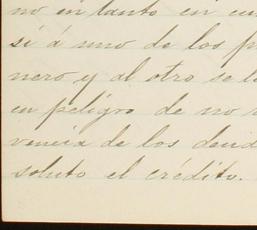 no en tanto en cu
sí á uno de los p
nero y al otro se l
en peligro de no
vencia de los deud
soluto el crédito.